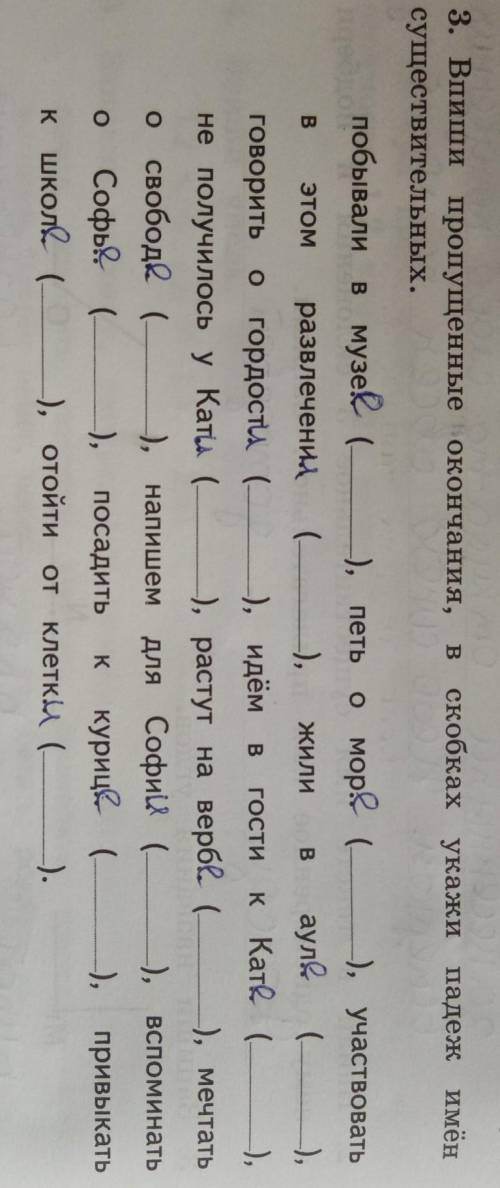 3. Впиши пропущенные окончания, в скобках укажи падеж имён
существительных.
побывали в музее (______), петь о море (______), участвовать
в этом развлечении (______), жили в ауле (______),
говорить о гордости (______), идём в гости к Кате (______),
не получилось у Кати (______), растут на вербе (______), мечтать
о свободе (______), напишем для Софии (______), вспоминать
о Софье (______), посадить к курице (______), привыкать
к школе (______), отойти от клетки (______).